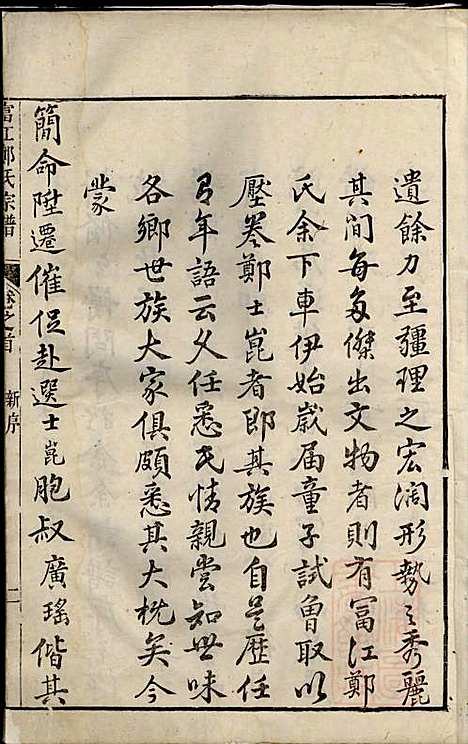 遺餘力至疆理之宏濶形勢之秀麗
其間每多傑出文物者則有富江鄭
氏余下車伊始歲届童子試曾取以
壓卷鄭士崑者即其族也自是歷任
有年語云久任悉民情親嘗知世味
各鄉世族大家俱頗悉其大槩矣今
蒙
簡命陞遷催促赴選士崑胞叔廣瑤偕其
富江鄭氏宗譜 卷之首 新序 二